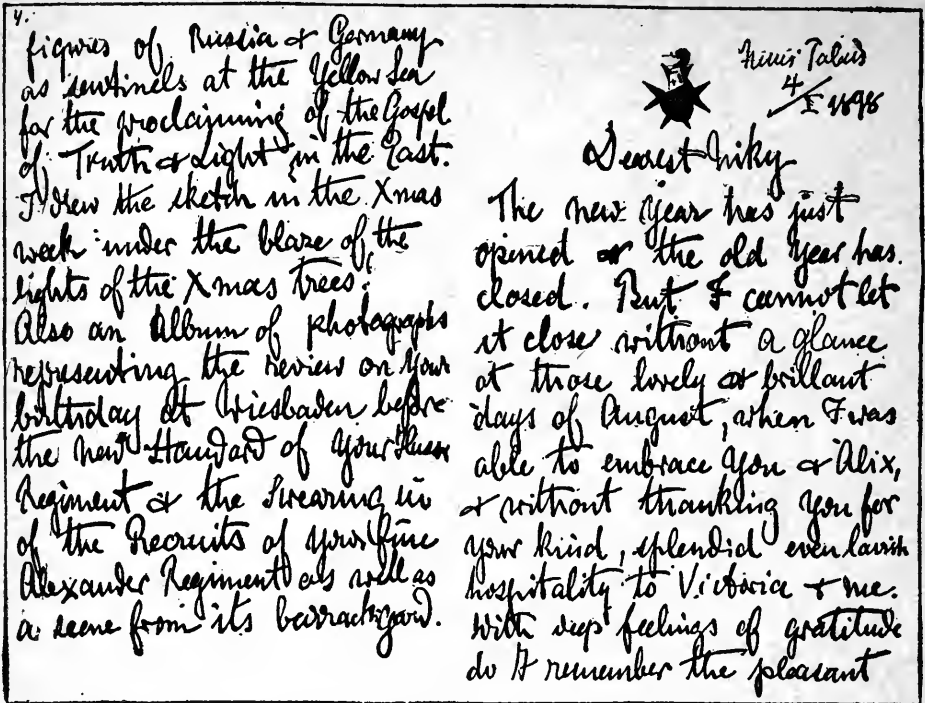 4.
figures of Russia & Germany
as sentinels at the Yellow Sea
for the proclaiming of the Gospel
of Truth & Light in the East.
I drew the sketch in the Xmas
week under the blaze of the
lights of the Xmas trees.
Also an Album of photographs
representing the review on your
birthday at Wiesbaden before
the new Standard of your Hussar
Regiment & the Swearing in
of the Recruits of your fine
Alexander Regiment as well as
a scene from its barrackyard.
Neues Palais
4/I 1898
Dearest Niky
The new year has just
opened & the old year has
closed. But I cannot let
it close without a glance
at those lovely & brillant
days of August, when I was
able to embrace You & Alix,
& without thanking You for
your kind, splendid even lavish
hospitality to Victoria & me.
With deep feelings of gratitude
do I remember the pleasant